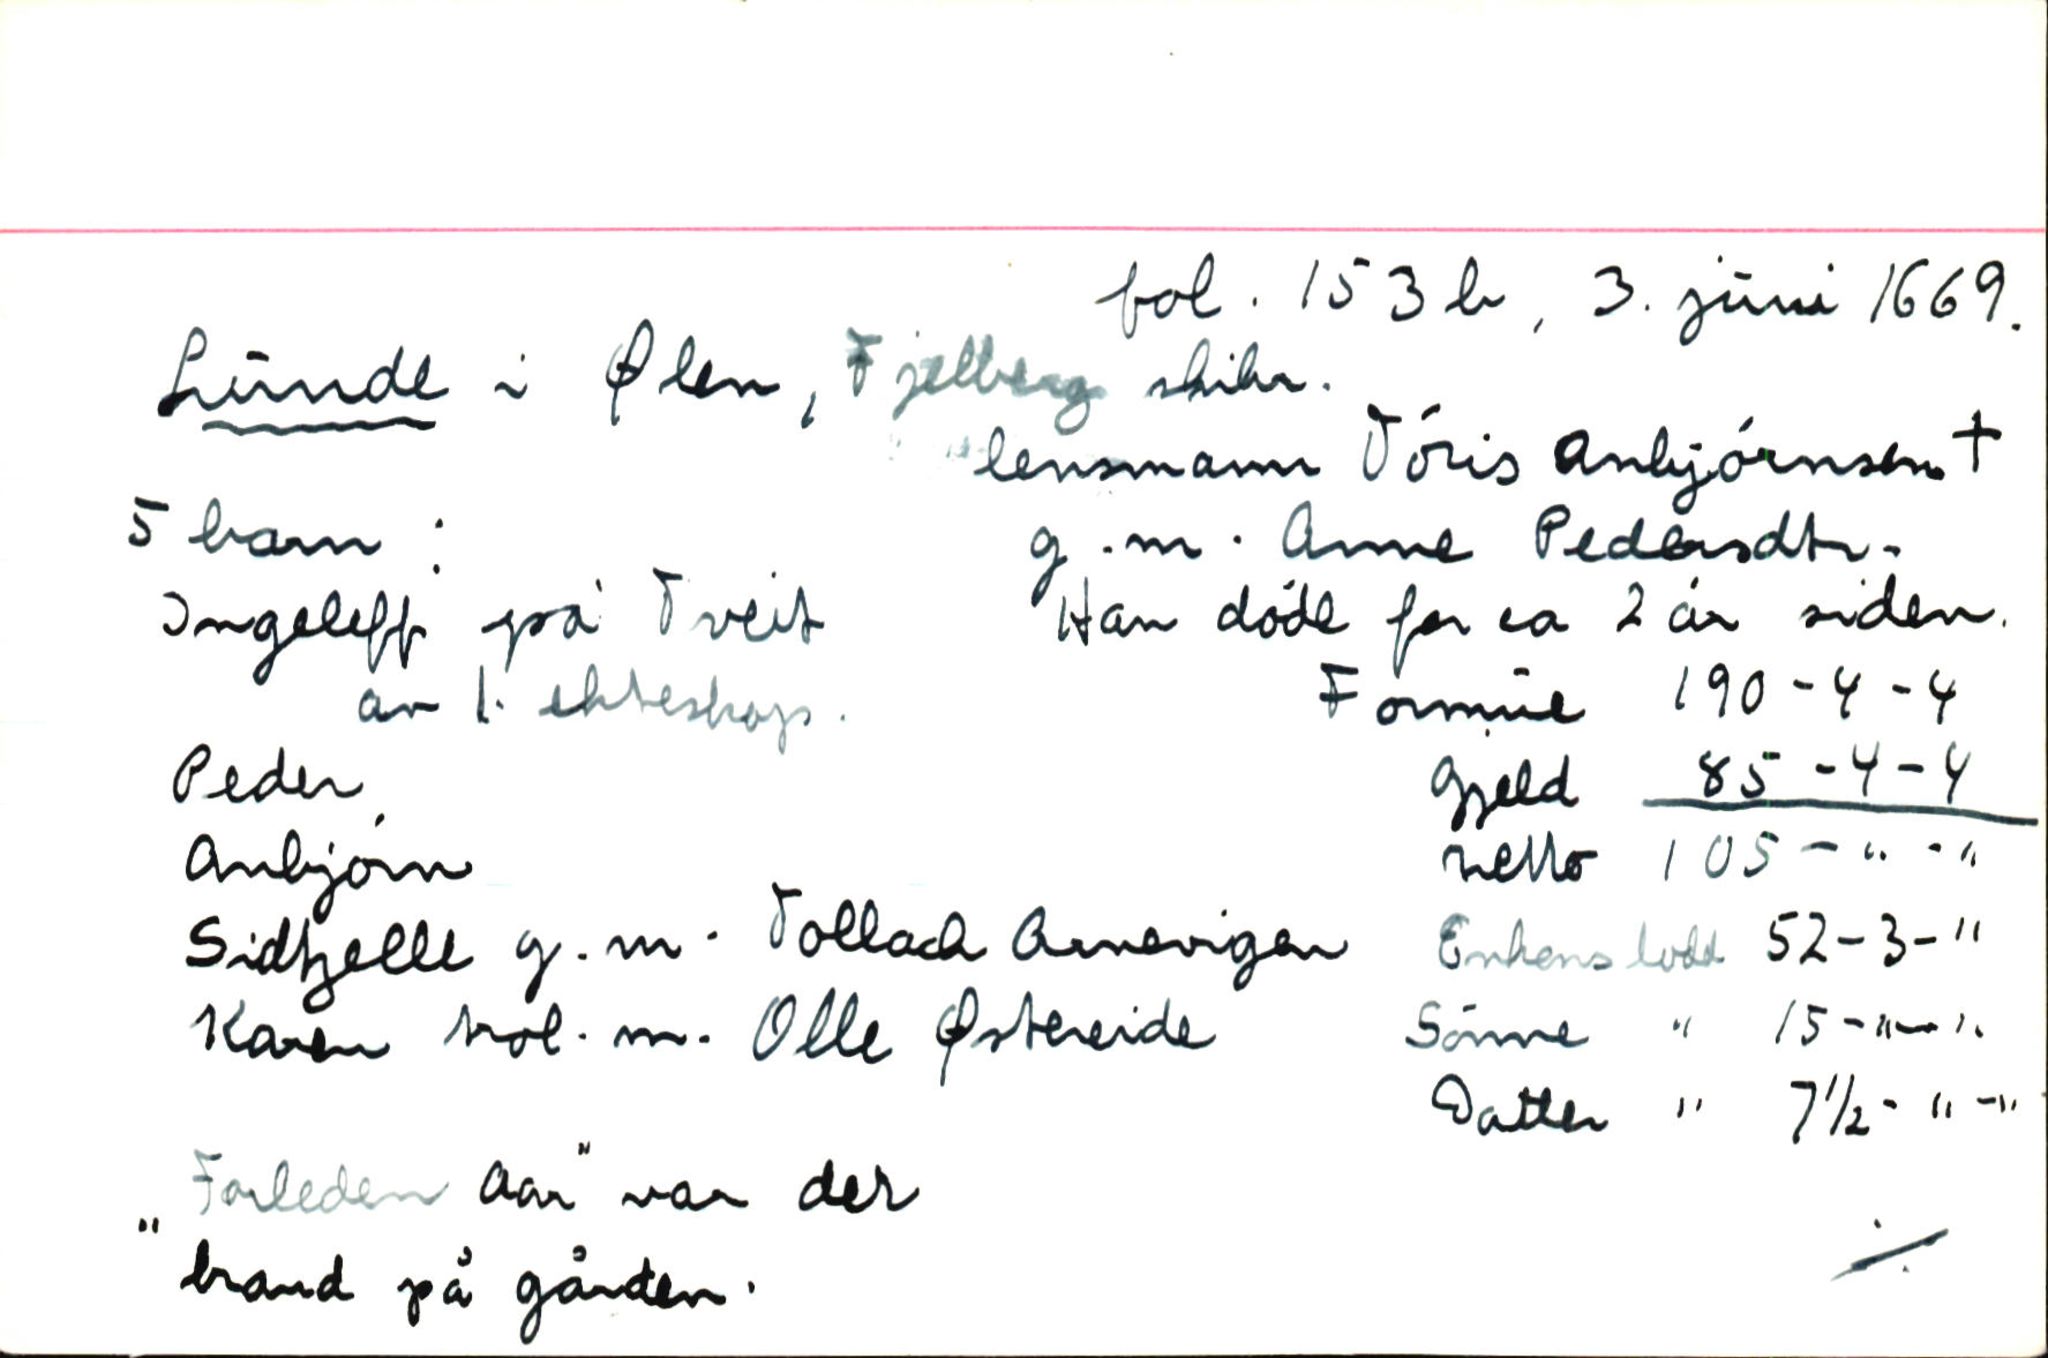 fol. 153 b, 3. juni 1669.
Lunde i Ølen, Fjelberg skibr.
lensmann Tóris Anbjórnsen †
5 barn :
g.m. Anne Pedersdtr.
Ingeleff på Tveit
Han döde for ca 2 år siden.
av 1. ekteskap.
Formue 190-4-4
Peder
Gjeld 85-4-4
Anbjórn
netto 105-"-"
Sidtzelle g.m. Tollach Arnevigen
Enkens lodd 52-3-"
Karen trol. m. Olle Østereide
Sönne " 15-"-"
Datter " 7½-"-"
"Forleden Aar" var der
brand på gården.